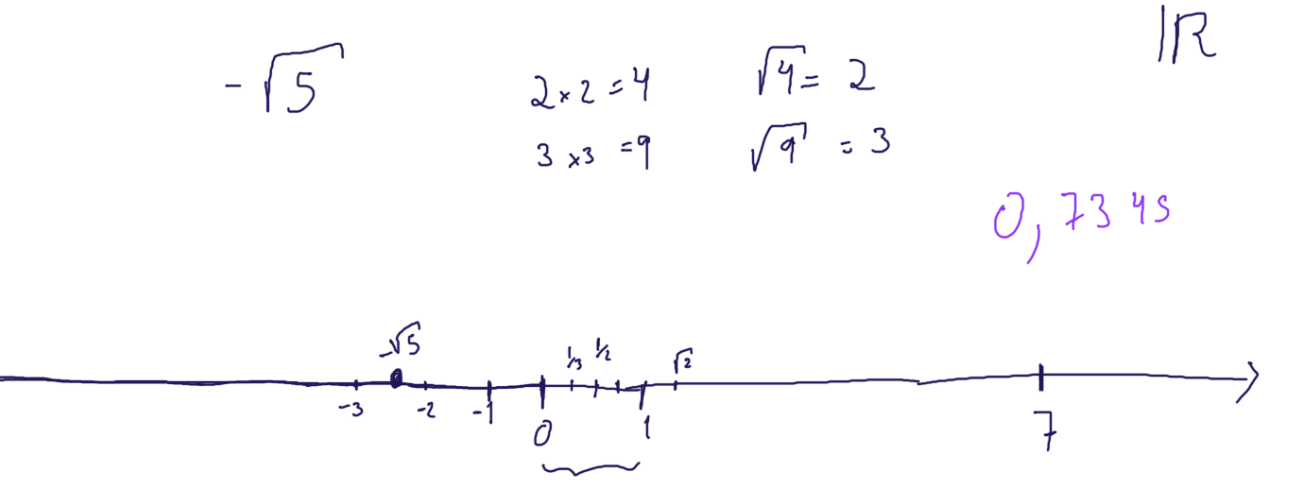 ℝ
-√5 2×2=4 √4=2
3×3=9 √9=3
0,7345
-√5 1/3 1/2 √2
-3 -2 -1 0 1 7